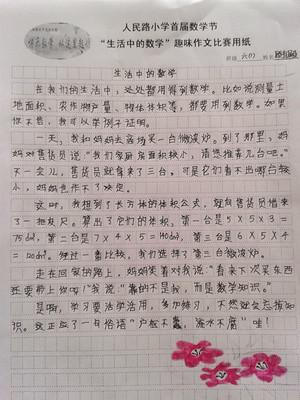 人民路小学首届数学节
“生活中的数学”趣味作文比赛用纸
班级 六(1) 姓名
生活中的数学
在我们的生活中，处处都用得到数学。比如说测量土
地面积、农作物产量、物体体积等，都要用到数学。如果
你不信，我可以举例子证明。
一天，我和妈妈去商场买一台微波炉。到了那里，妈
妈对售货员说“我们家厨房面积较小，请您推荐几台吧。”
不一会儿，售货员就拿来了三台。可是它们看不出哪台较
小，妈妈也作不了决定。
这时，我想到了长方体的体积公式，就向售货员借来
了一把皮尺。算出了它们的体积，第一台是5×5×3=
75dm³，第二台是7×4×5=140dm³，第三台是6×5×4
=120dm³。经过一番比较，我们选择了第三台微波炉。
走在回家的路上，妈妈笑着对我说：“看来下次买东西
还要带上你呀！”我说“靠的不是我，而是数学知识。”
是啊，学习要活学活用，多加练习，不然就会忘掉知
识。这正应了一句俗语“户枢不蠹，流水不腐”哇！